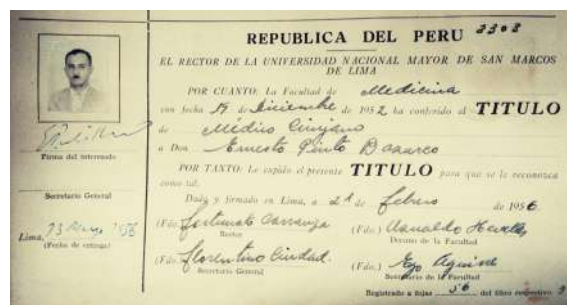 REPUBLICA DEL PERU 3303
EL RECTOR DE LA UNIVERSIDAD NACIONAL MAYOR DE SAN MARCOS
DE LIMA
POR CUANTO: La Facultad de Medicina
con fecha 19 de Diciembre de 1952 ha conferido el TITULO
de Médico Cirujano
a Don Ernesto Pinto
POR TANTO: Le expido el presente TITULO para que se le reconozca
como tal.
Dado y firmado en Lima, a de febrero de 1956.
(Fdo.) Fortunato Carranza
Rector
(Fdo.)
Decano de la Facultad
(Fdo.) Florentino
Secretario General
(Fdo.) Ego Aguirre
Secretario de la Facultad
Registrado a fojas 56 del libro respectivo.
Firma del interesado
Secretario General
Lima, 1956
(Fecha de entrega)